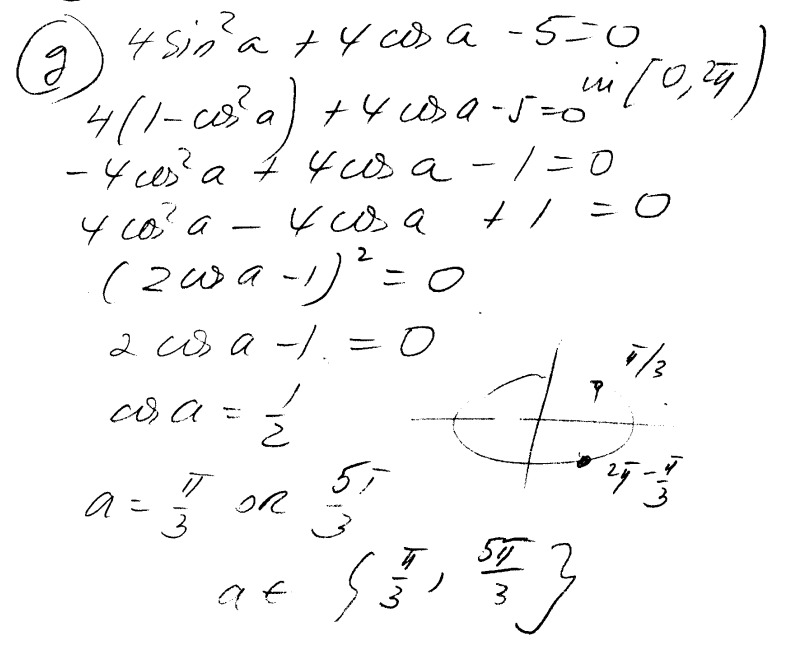 g 4 sin²a + 4 cos a - 5 = 0
in [0, 2π)
4(1 - cos²a) + 4 cos a - 5 = 0
- 4 cos²a + 4 cos a - 1 = 0
4 cos²a - 4 cos a + 1 = 0
(2 cos a - 1)² = 0
2 cos a - 1 = 0
π/3
cos a = 1/2
2π - π/3
a = π/3 OR 5π/3
a ∈ {π/3, 5π/3}